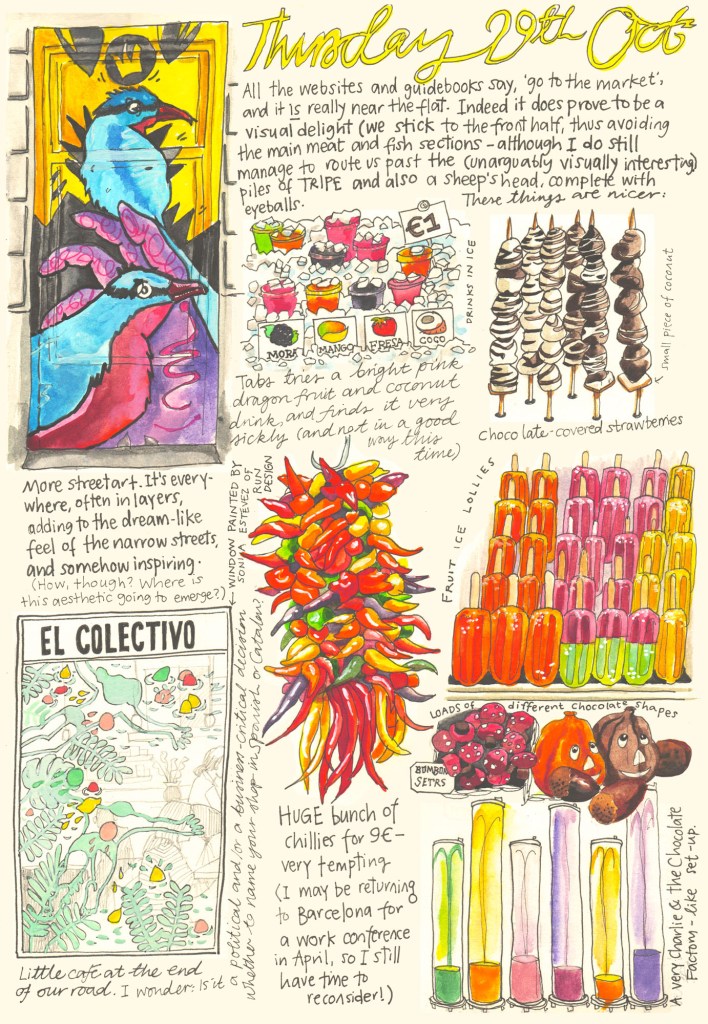 Thursday 29th Oct
All the websites and guidebooks say, 'go to the market',
and it is really near the flat. Indeed it does prove to be a
visual delight (we stick to the front half, thus avoiding
the main meat and fish sections - although I do still
manage to route us past the (unarguably visually interesting)
piles of TRIPE and also a sheep's head, complete with
eyeballs.
These things are nicer:
€1
DRINKS IN ICE
MORA
MANGO
FRESA
COCO
Tabs tries a bright pink
dragon fruit and coconut
drink, and finds it very
sickly (and not in a good
way this
time)
small piece of coconut
chocolate-covered strawberries
More street art. It's every-
where, often in layers,
adding to the dream-like
feel of the narrow streets,
and somehow inspiring.
(How, though? Where is
this aesthetic going to emerge?)
WINDOW PAINTED BY
SONIA ESTEVEZ OF
RUN
DESIGN
FRUIT ICE LOLLIES
EL COLECTIVO
Little café at the end
of our road. I wonder: Is it
a political and/or a business-critical decision
whether to name your shop in Spanish or Catalan?
HUGE bunch of
chillies for 9€ -
very tempting
(I may be returning
to Barcelona for
a work conference
in April, so I still
have time to
reconsider!)
LOADS of different chocolate shapes
BUMBON
SETRS
A very Charlie & the Chocolate
Factory-like set-up.